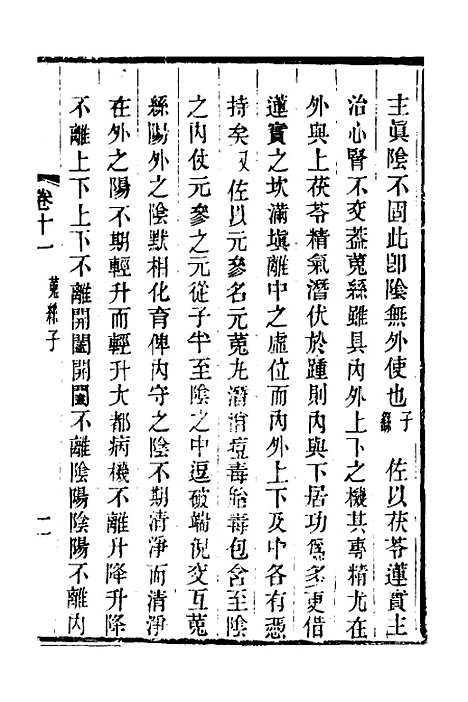 主眞陰不固此卽陰無外使也子繇 佐以茯苓蓮實主
治心腎不交葢菟絲雖具內外上下之機其專精尤在
外與上茯苓精氣潛伏於踵則內與下居功爲多更借
蓮實之坎滿塡離中之虛位而內外上下及中各有憑
持矣又佐以元參名元菟丸潛消痘毒胎毒包含至陰
之內仗元參之元從子半至陰之中逗破端倪交互菟
絲陽外之陰默相化育俾內守之陰不期清淨而清淨
在外之陽不期輕升而輕升大都病機不離升降升降
不離上下上下不離開闔開闔不離陰陽陰陽不離內
卷十一 菟絲子 十一